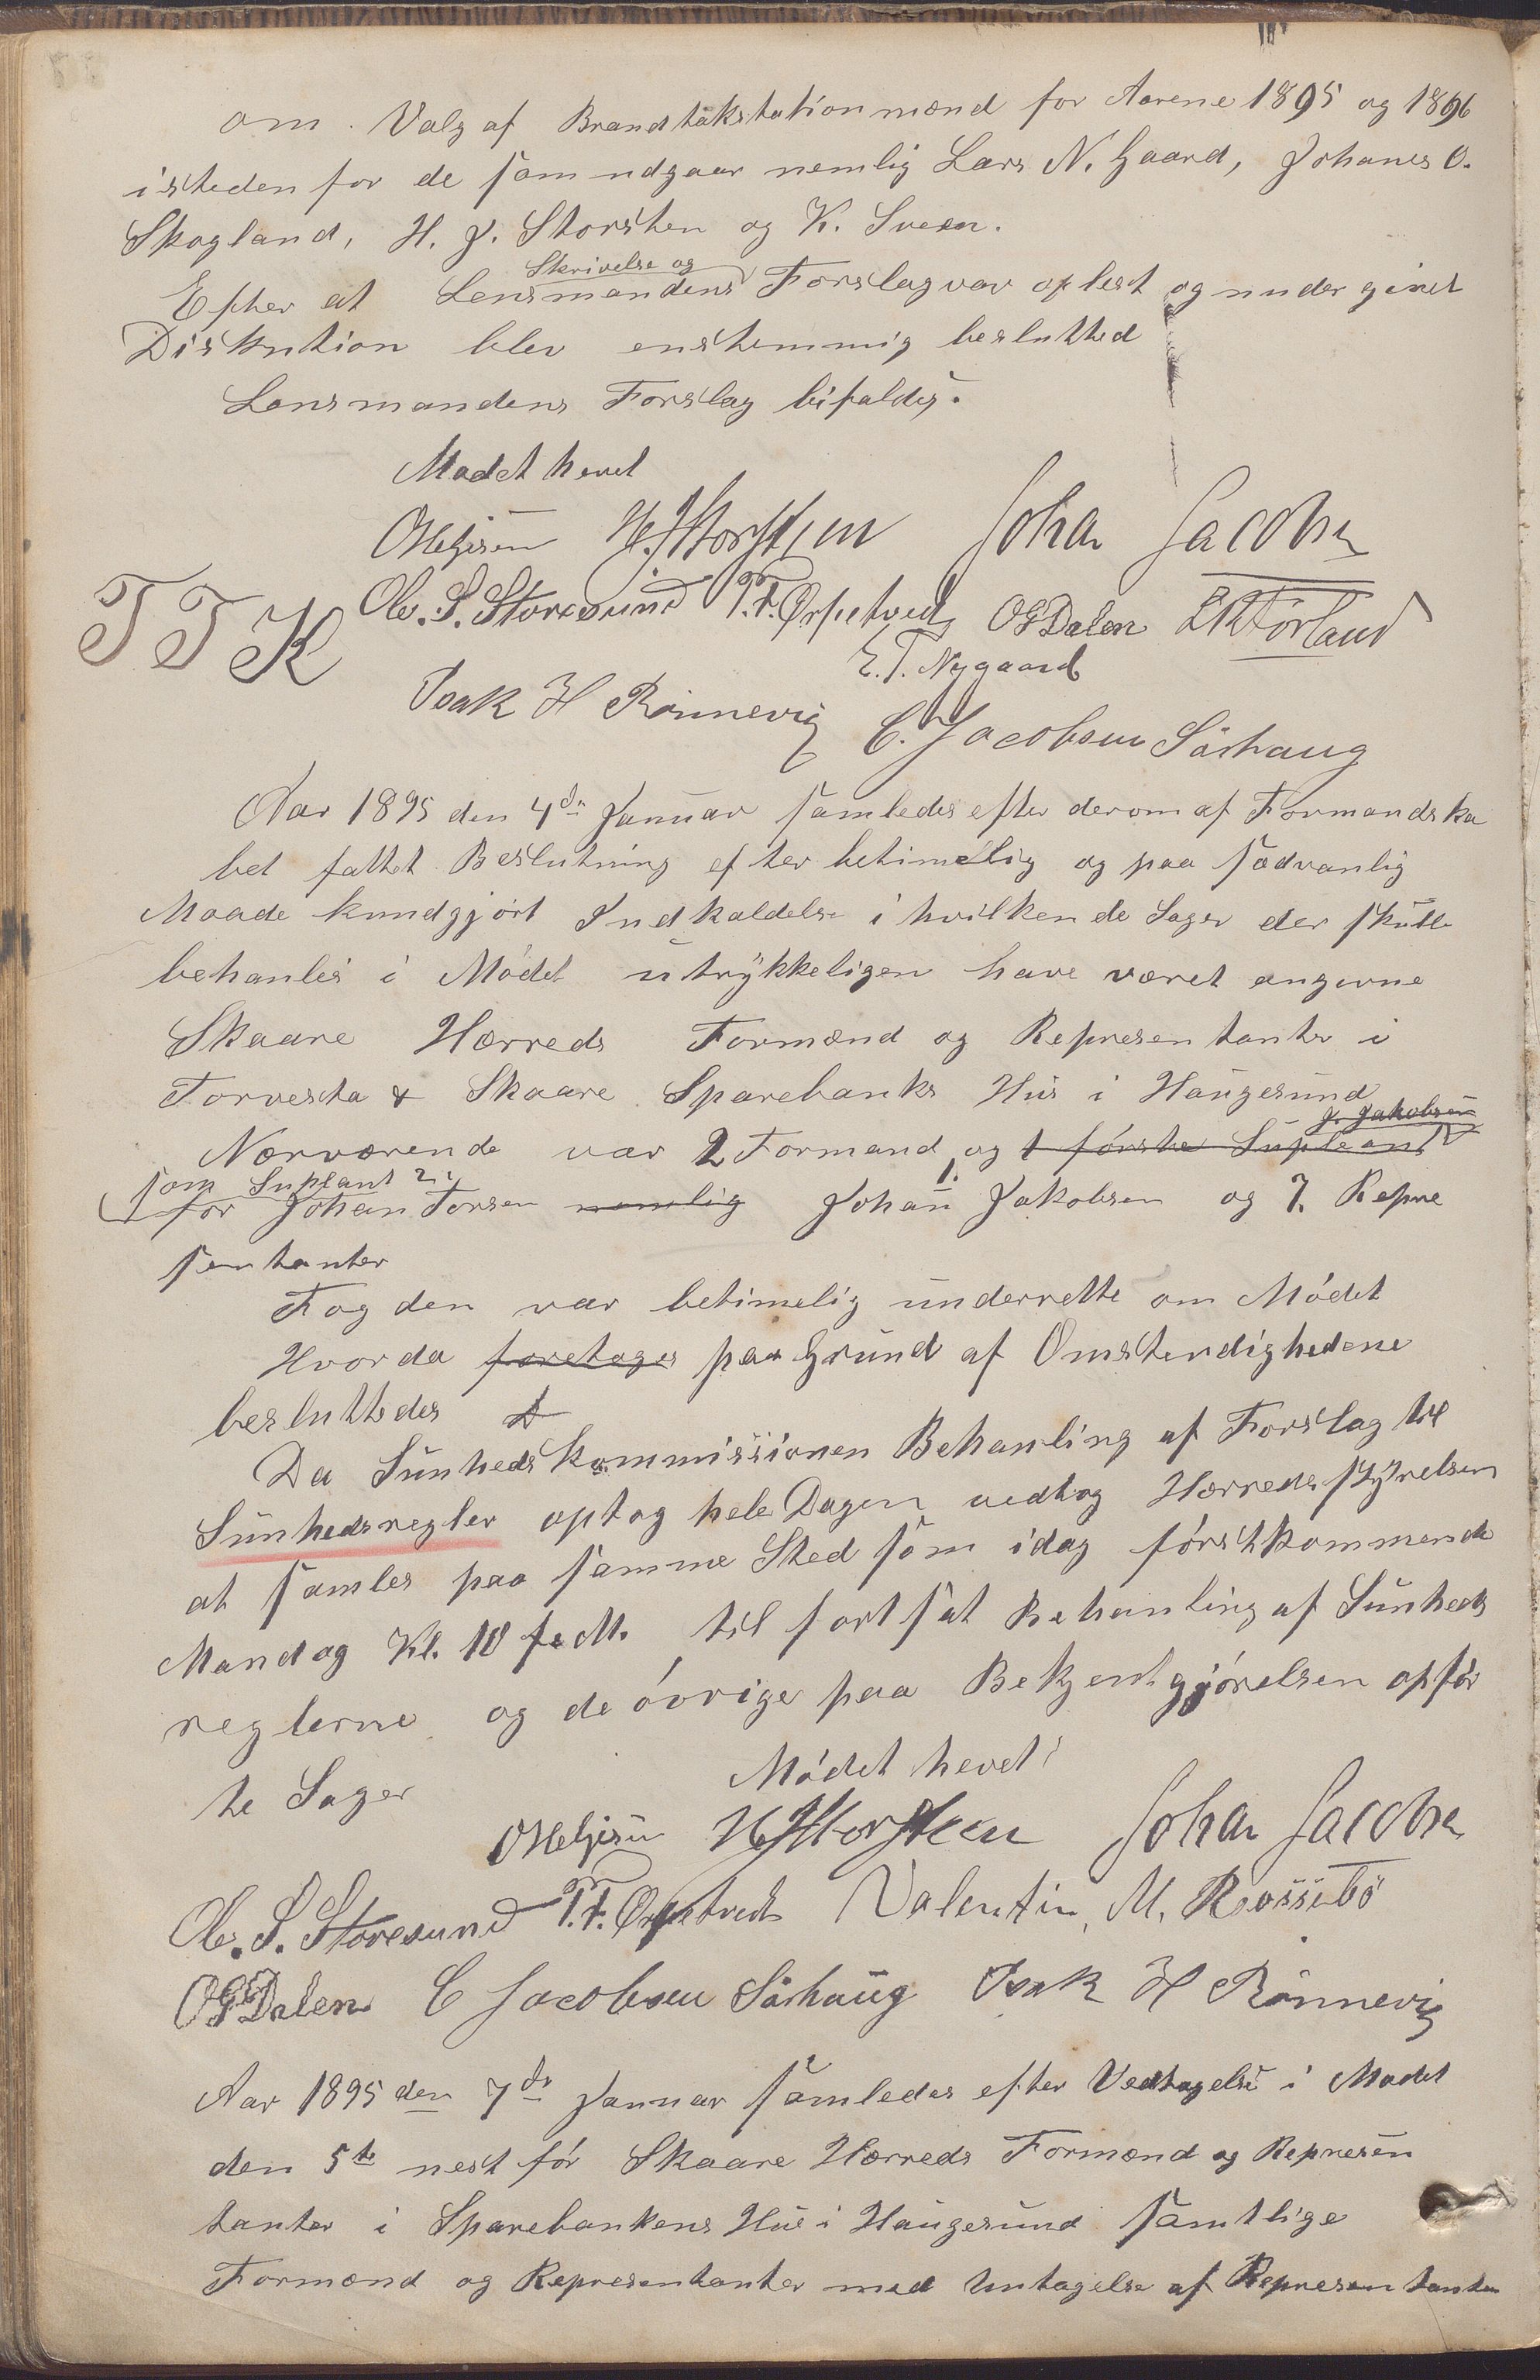 om. Valg af Brandtakstationmænd for Aarene 1895 og 1896
isteden for de som udgaar nemlig Lars N. Gaard, Johanes O.
Skogland, H. J. Storsten og K. Sveen.
Skrivelse og
Efter at Lensmandens Forslag var oplest og under givet
Diskution blev enstemmig beslutted
Lensmandens Forslag bifaldes.
Mødet hevet
OHelgesen H. J. Storsten Johan Jacobsen
Ole. S. Storesund T. T. Ørpetvedt OGDalen Førland
T T K
E. T. Nygaard
Isak H Rønnevig
C. Jacobsen Sørhaug
Aar 1895 den 4de Januar samledes efter derom af Formandska
bet fattet Beslutning efter betimelig og paa sædvanlig
Maade kundgjørt Indkaldelse i hvilken de Sager der skulle
behanles i Mødet utrykkeligen have været angivne
Skaare Herreds Formænd og Representanter i
Torvesta & Skaare Sparebanks Hus i Haugesund
J. Jakobsen
Nærværende var 2 Formænd og 1 første Supleant
som Suplant 2.
for Johan Torsen nemlig 1. Johan Jakobsen og 7. Repre
sentanter
Fogden var betimelig underrette om Mødet
Hvorda foretages paa Grund af Omstendighedene
besluttedes
Da Sunhedskommissionen Behanling af Forslag til
Sunhedsregler optog hele Dagen vedtog Herredsstyrelsen
at samles paa samme Sted som idag førstkommende
Mandag Kl. 10 f. M. til fortsat Behanling af Sunheds
reglerne og de øvrige paa Bekjentgjørelsen opfør
te Sager
Mødet hevet
OHelgesen H. J. Storsten Johan Jacobsen
Ole. S. Storesund T. T. Ørpetvedt Valentin M. Rossebø
OGDalen C Jacobsen Sørhaug Isak H Rønnevig
Aar 1895 den 7de Januar samledes efter Vedtagelse i Mødet
den 5te nest før Skaare Herreds Formænd og Represen
tanter i Sparebankens Hus i Haugesund samtlige
Formænd og Representanter med Untagelse af Representanten